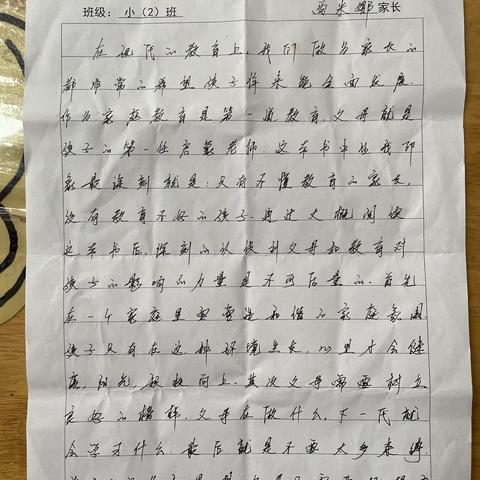 班级:小(2)班 西米娜家长
在现代的教育上,我们做为家长的
都非常的希望孩子将来能全面发展.
作为家庭教育是第一道教育,父母就是
孩子的第一任启蒙老师.这本书中给我印
象最深刻就是:只有不懂教育的家长,
没有教育不好的孩子.通过大概阅读
这本书后.深刻的认识到父母和教育对
孩子的影响的力量是不可估量的.首先
在一个家庭里要营造和谐的家庭氛围.
孩子只有在这种环境生长,心里才会健
康,阳光,积极向上.其次父母需要树立
良好的榜样,父母在做什么,下一代就
会学才什么.最后就是不要太多束缚